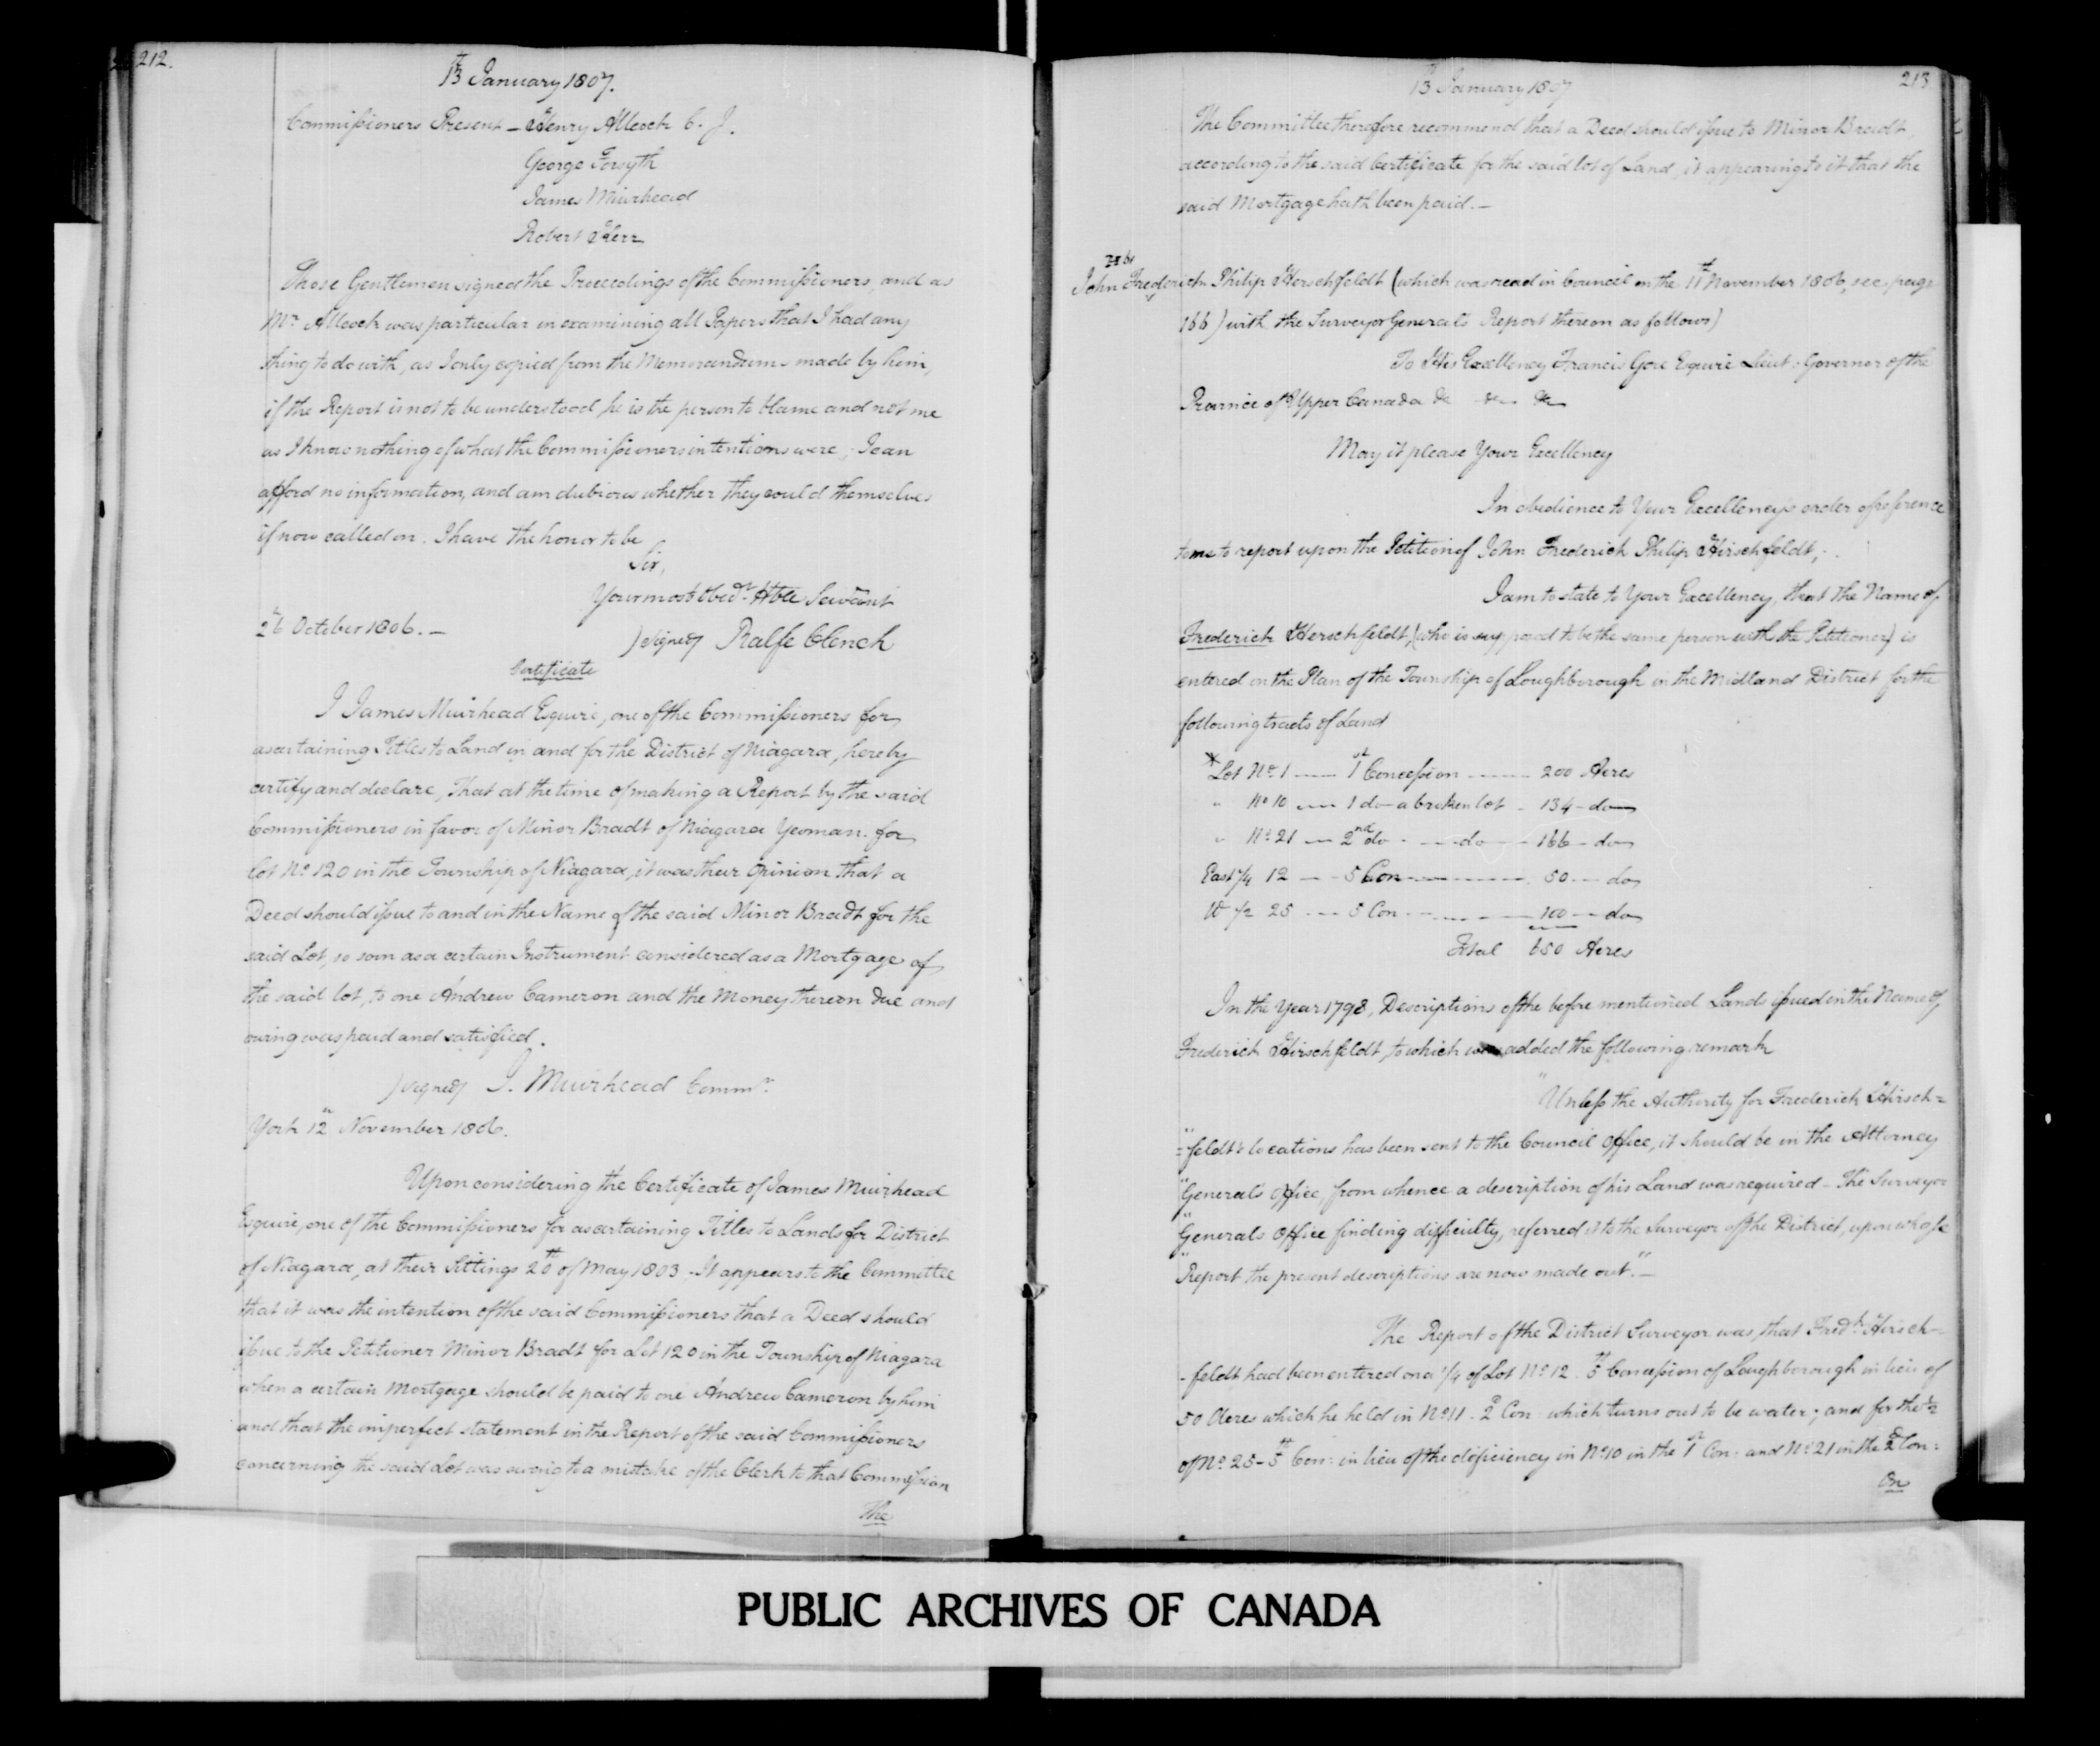 212.
13th January 1807.
Commissioners Present – Henry Allcock C. J.
George Forsyth
James Muirhead
Robert Kerr
These Gentlemen signed the Proceedings of the Commissioners, and as
Mr. Allcock was particular in examining all Papers that I had any
thing to do with, as I only copied from the Memorandums made by him,
if the Report is not to be understood, he is the person to blame and not me
as I know nothing of what the Commissioners intentions were, I can
afford no information, and am dubious whether they could themselves
if now called on. I have the honor to be
Sir,
Your most Obedt. Hble Servant
26 October 1806. –
(signed) Ralfe Clench
Certificate
I James Muirhead Esquire, one of the Commissioners for
ascertaining Titles to Land in and for the District of Niagara, hereby
certify and declare, That at the time of making a Report by the said
Commissioners in favor of Minor Bradt of Niagara Yeoman. for
lot No. 120 in the Township of Niagara, it was their Opinion that a
Deed should issue to and in the Name of the said Minor Bradt for the
said Lot, so soon as a certain Instrument considered as a Mortgage of
the said lot, to one Andrew Cameron and the Money thereon due and
owing was paid and satisfied.
(signed) J. Muirhead Commr.
York 12th November 1806.
Upon considering the Certificate of James Muirhead
Esquire, one of the Commissioners for ascertaining Titles to Lands for District
of Niagara, at their Sittings 20th of May 1803 – It appears to the Committee
that it was the intention of the said Commissioners that a Deed should
issue to the Petitioner Minor Bradt for Lot 120 in the Township of Niagara
when a certain Mortgage should be paid to one Andrew Cameron by him
and that the imperfect statement in the Report of the said Commissioners
concerning the said Lot was owing to a mistake of the Clerk to that Commission
The
213
13th January 1807
The Committee therefore recommend that a Deed should issue to Minor Bradt,
according to the said Certificate for the said lot of Land, it appearing to it that the
said Mortgage hath been paid. –
John Frederich Philip Herschfeldt (which was read in Council on the 11th November 1806, see page
166) with the Surveyor Generals Report thereon as follows)
To His Excellency Francis Gore Esquire Lieut: Governor of the
Province of Upper Canada &c &c &c
May it please Your Excellency
In obedience to Your Excellency's order of reference
to me to report upon the Petition of John Frederich Philip Hirschfeldt,
I am to state to Your Excellency, that the Name of
Frederich Herschfeldt, (who is supposed to be the same person with the Petitioner) is
entered in the Plan of the Township of Loughborough in the Midland District for the
following tracts of Land
* Lot No. 1 –– 1st Concession –– 200 Acres
" No 10 –– 1 do – a broken lot – 134 – do
" No. 21 – 2nd do – – do – – 166 – do
East 1/4 12 – – 5 Con – – 50 – do
W 1/2 25 – – 5 Con – – 100 – do
Total 650 Acres
In the Year 1798, Descriptions of the before mentioned Lands issued in the Name of
Frederich Hirschfeldt, to which was added the following remark
"Unless the Authority for Frederich Hirsch=
"=feldt's locations has been sent to the Council Office, it should be in the Attorney
"Generals Office, from whence a description of his Land was required – The Surveyor
"Generals Office finding difficulty, referred it to the Surveyor of the District, upon whose
"Report the present descriptions are now made out." –
The Report of the District Surveyor was, that Fredk. Hirsch-
-feldt had been entered on a 1/4 of Lot No 12. 5th Concession of Loughborough in lieu of
50 Acres which he held in No 11. 2d Con: which turns out to be water; and for the 1/2
of No. 25 – 5th Con: in lieu of the deficiency in No 10 in the 1st Con: and No. 21 in the 2d Con:
On
PUBLIC ARCHIVES OF CANADA